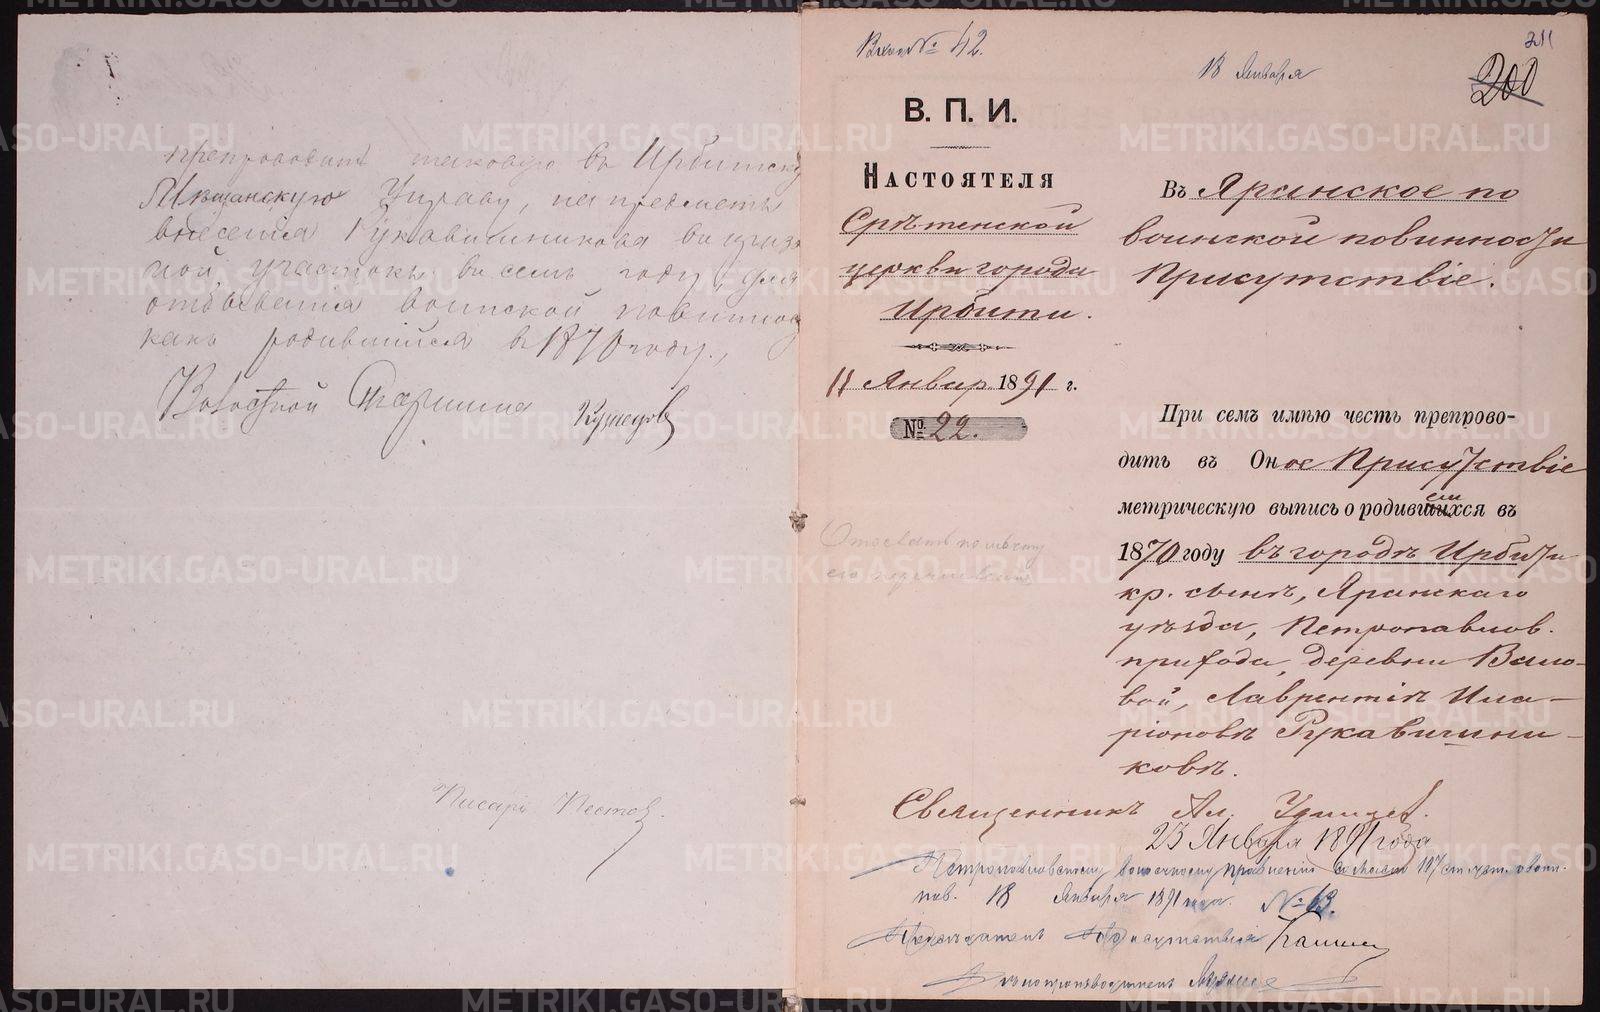 препроводитъ таковую въ Ирбитскую
Мѣщанскую Управу, на предметъ
внесенія Рукавишникова въ призыв
ной участокъ въ семъ году, для
отбыванія воинской повиннос
какъ родившійся въ 1870 году.,
Волостной Старшина Кузнецовъ
Писарь Пестовъ.
Вход № 42.
18 Января
311
200
В. П. И.
НАСТОЯТЕЛЯ
Срѣтенской
церкви города
Ирбити.
11 Январ 1891 г.
№ 22.
Въ Яранское по
воинской повинности
Присутствіе.
При семъ имѣю честь препрово-
дить въ Оное Присутствіе
метрическую выпись о родившемся въ
1870 году въ городѣ Ирбити
кр. сынѣ, Яранскаго
уѣзда, Петропавлов.
прихода, деревни Вало-
вой, Лаврентіѣ Ила-
ріоновѣ Рукавишни-
ковѣ.
Священникъ Ал. Удинцев.
23 Января 1891 года
Петропавловскому волостному правленію
18 Января 1891 года. № 63.
Предсѣдатель Присутствія
Дѣлопроизводитель
METRIKI.GASO-URAL.RU